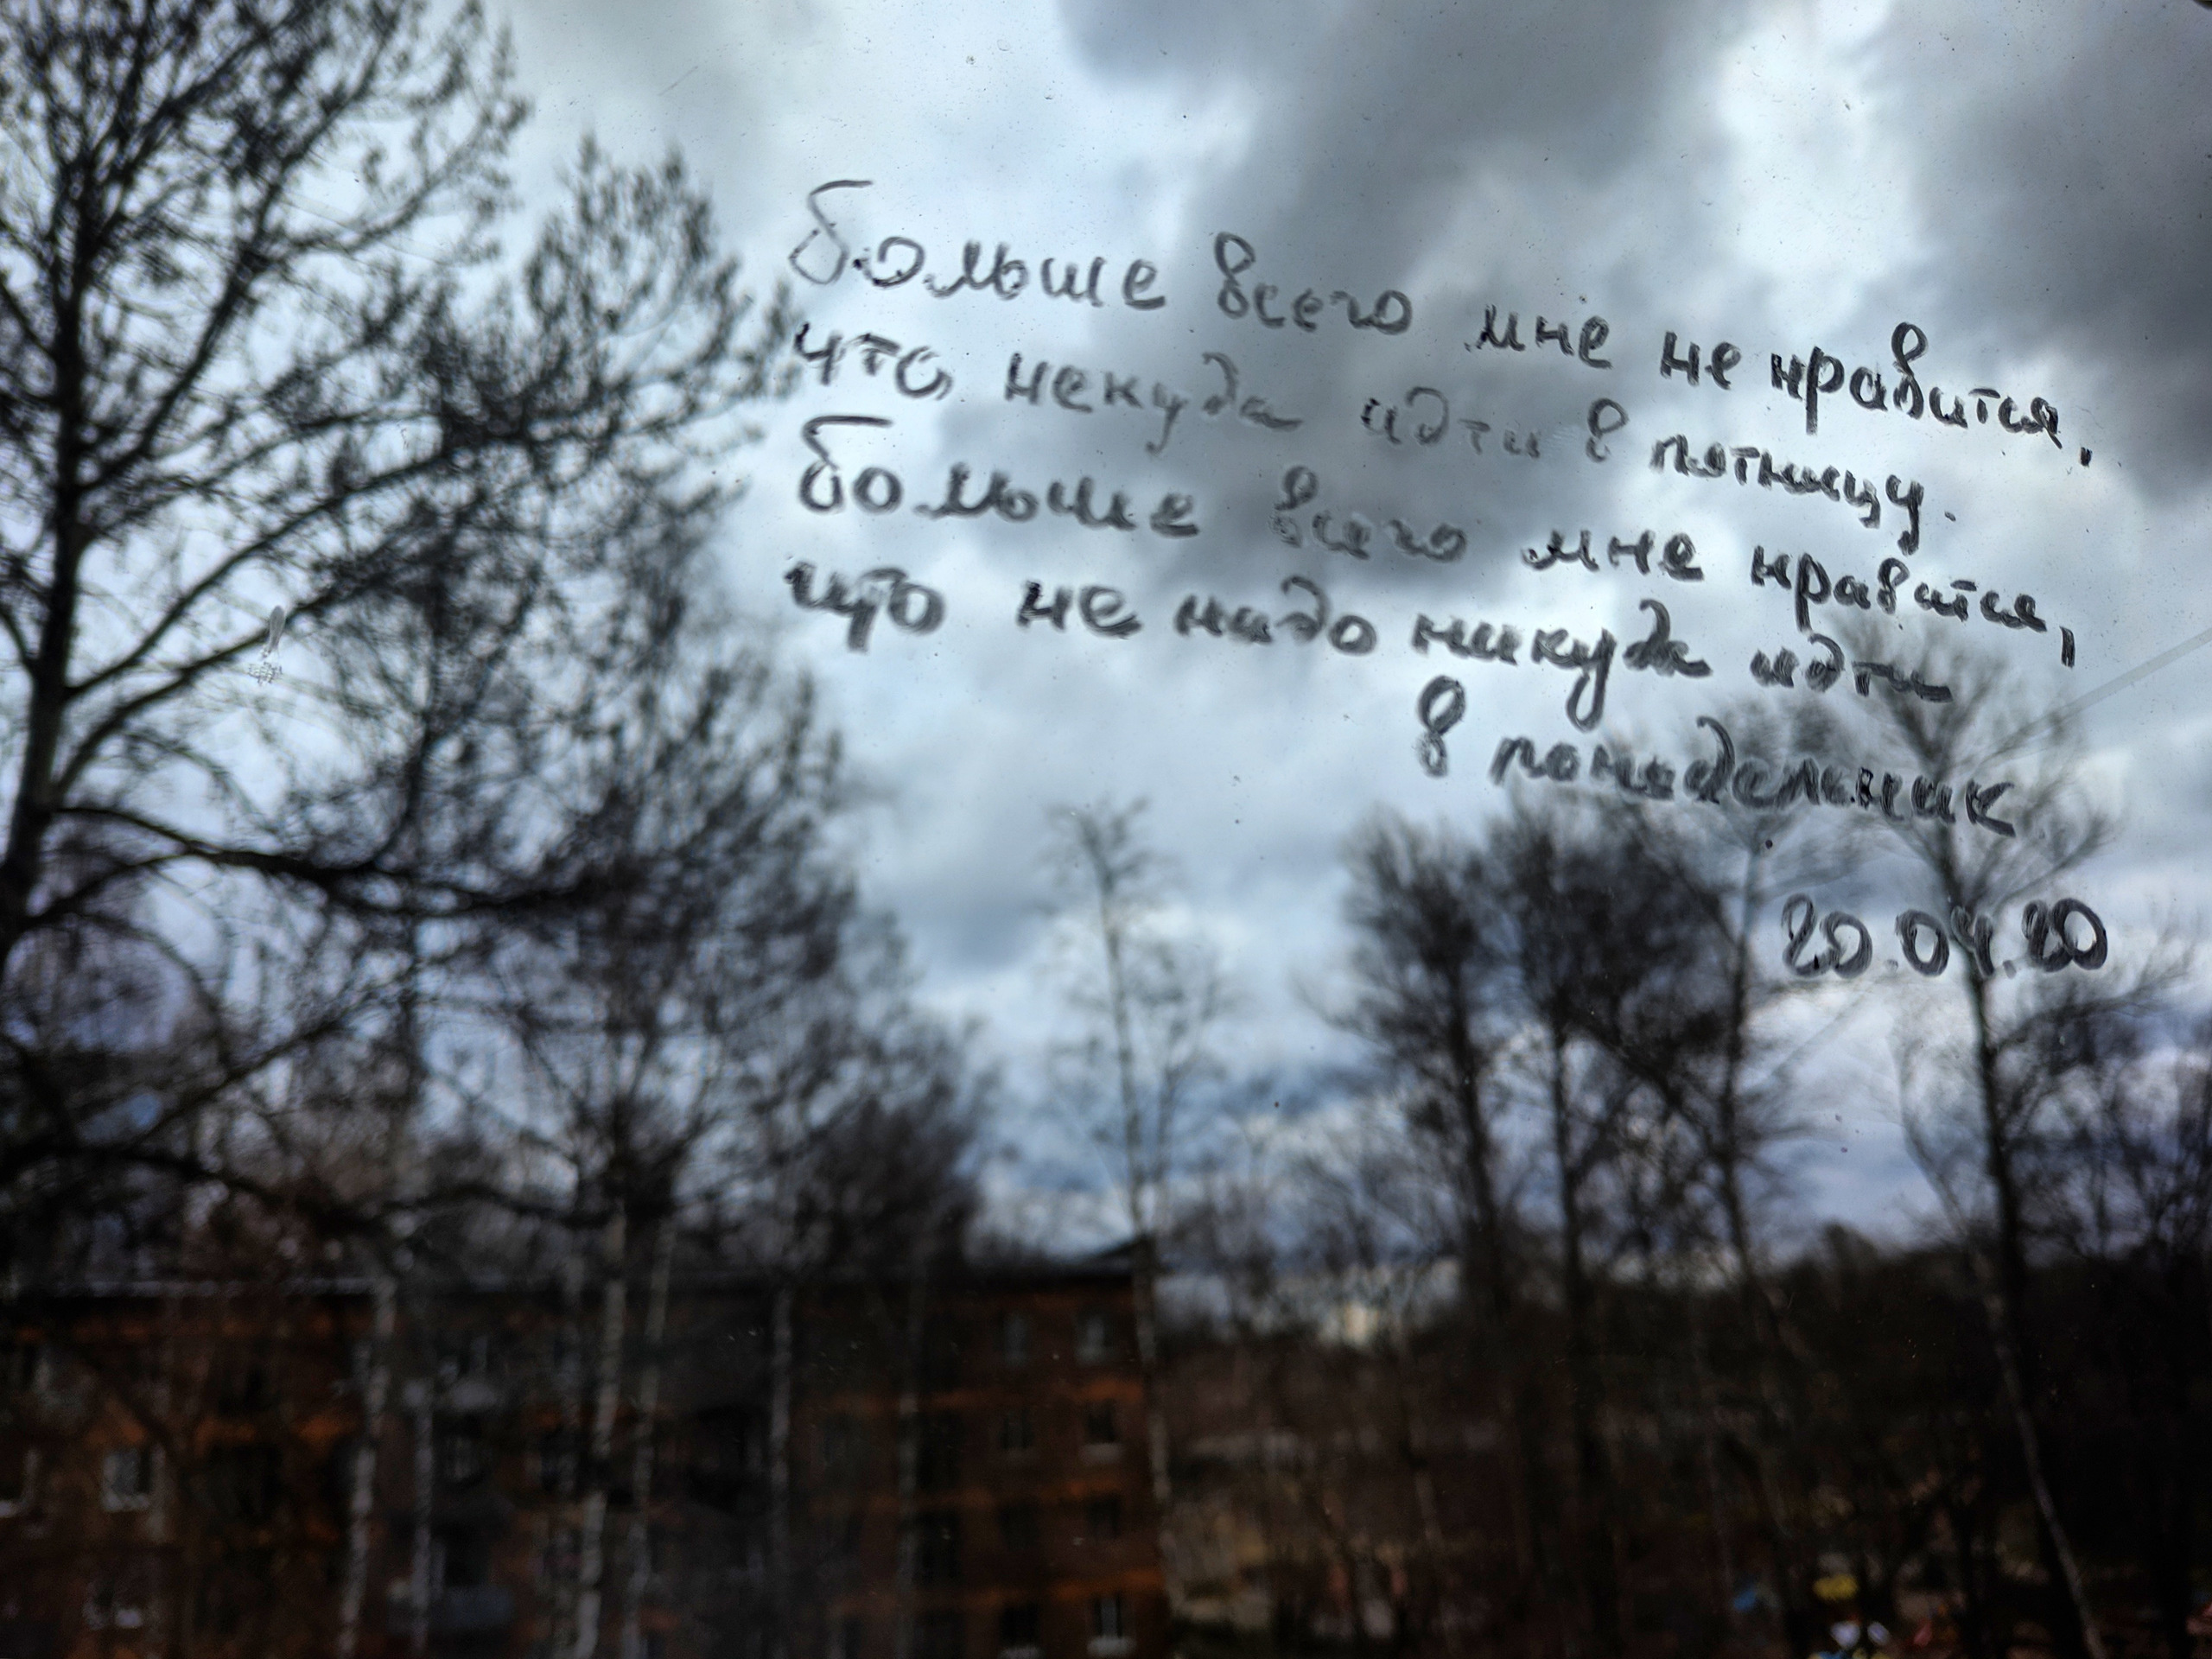 больше всего мне не нравится,
что, некуда идти в пятницу.
больше всего мне нравится,
что не надо никуда идти
в понедельник.
20.04.20